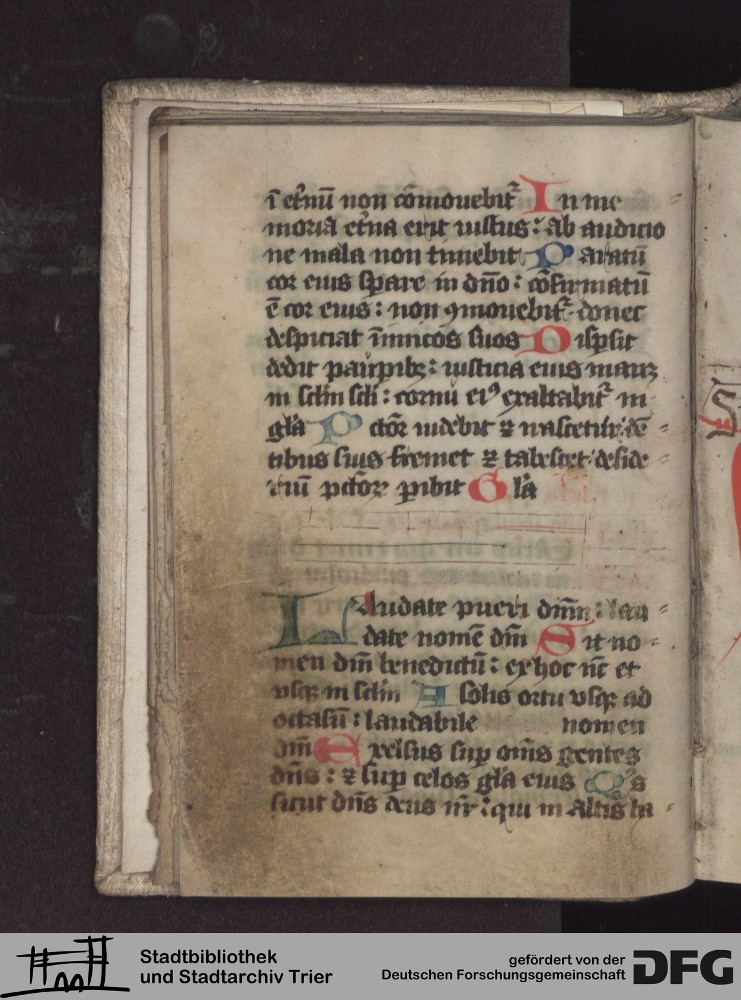 ī et̄nū non cōmouebit᷑ In me
moria et̄na erit iustus : ab auditio
ne mala non timebit Paratū
cor eius sꝑare in dn̄o : cōfirmatū
ē cor eius : non ꝯmouebit᷑ donec
despiciat īimicos suos Disꝑsit
dedit pauꝑibꝫ : iusticia eius manꝫ
in sc̄lm sc̄li : cornu eiꝰ exaltabit᷑ in
gl̄a Pctōr uidebit ⁊ irascetur dē
tibus suis fremet ⁊ tabescet deside
riū pctōꝝ ꝑibit Gl̄a
Laudate pueri dn̄m : lau
date nomē dn̄i Sit no
men dn̄i benedictū : ex hoc nc̄ et
vsqꝫ in sc̄lm A solis ortu vsqꝫ ad
occasū : laudabile nomen
dn̄i Excelsus suꝑ om̄s gentes
dn̄s : ⁊ suꝑ celos gl̄a eius Qͥs
sicut dn̄s deus nr̄ : qui in altis ha
Stadtbibliothek
und Stadtarchiv Trier
gefördert von der
Deutschen Forschungsgemeinschaft
DFG